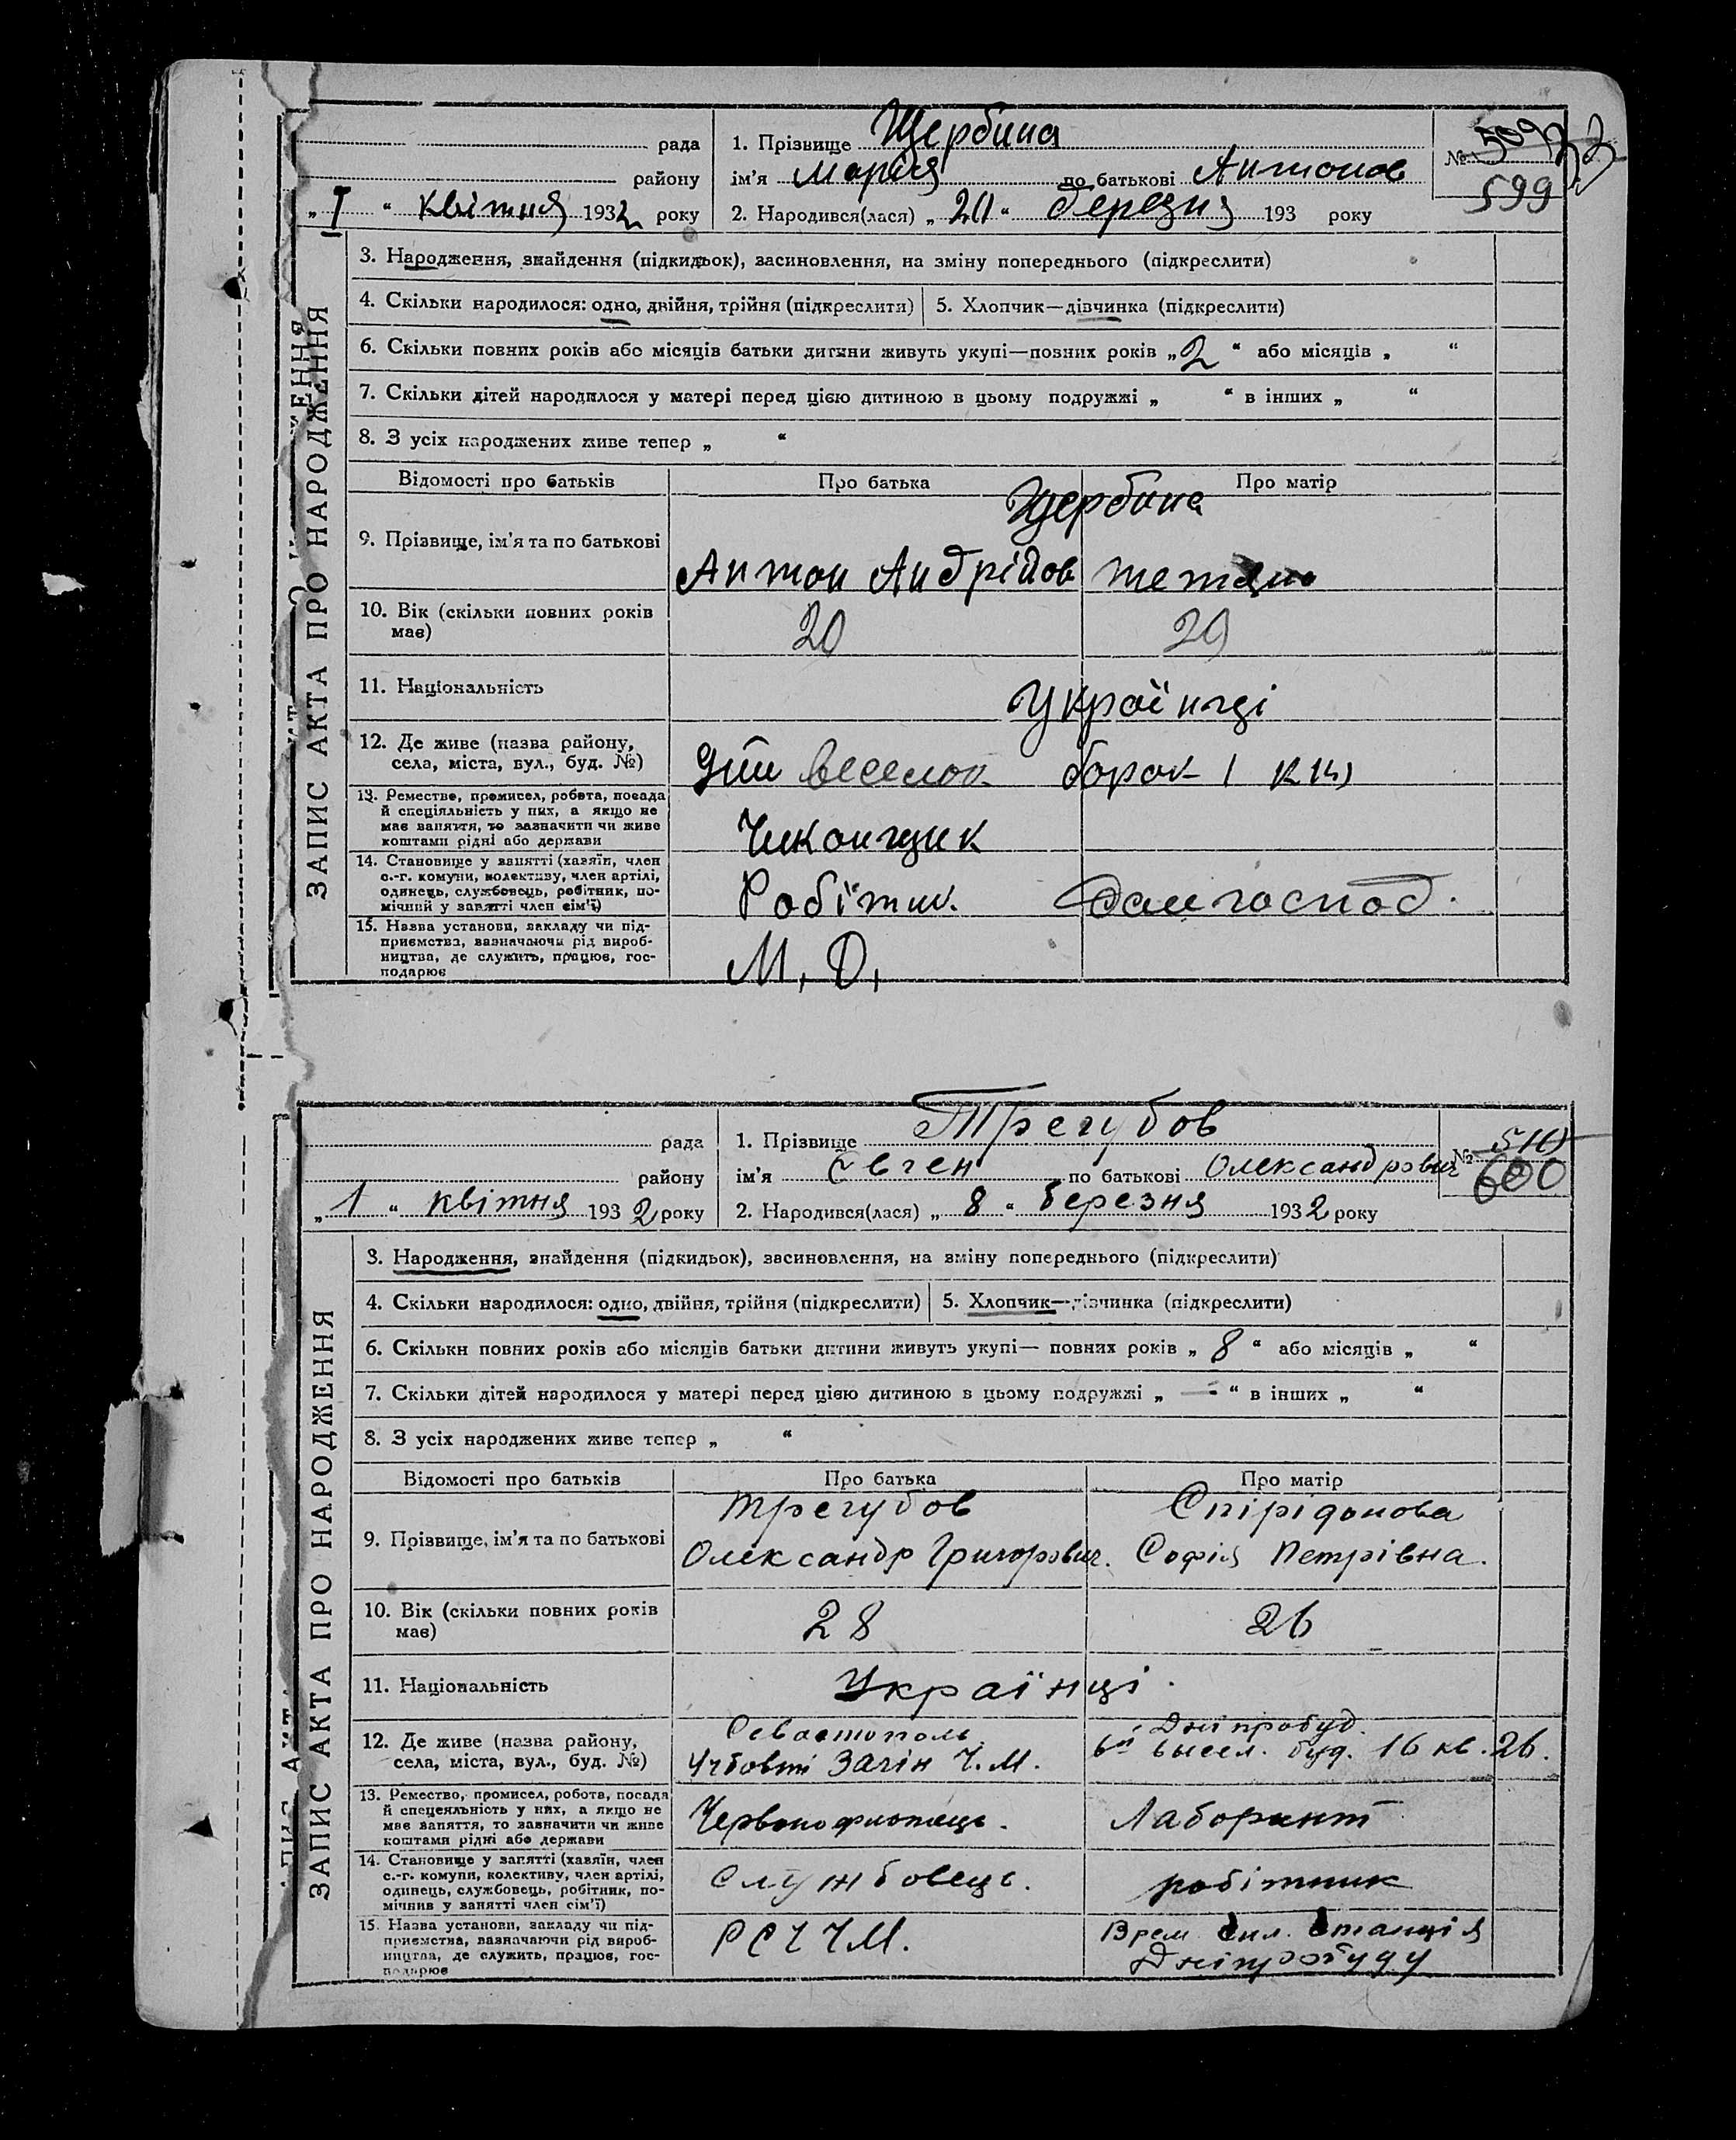 рада
району
„ I “ квітня 1932 року
1. Прізвище Щербина
ім’я Марія по батькові Антонов
2. Народився(лася) „ 20 “ березня 193 року
№ 509
599
ЗАПИС АКТА ПРО НАРОДЖЕННЯ
3. Народження, знайдення (підкидьок), засиновлення, на зміну попереднього (підкреслити)
4. Скільки народилося: одно, двійня, трійня (підкреслити) 5. Хлопчик—дівчинка (підкреслити)
6. Скільки повних років або місяців батьки дитини живуть укупі—повних років „ 2 “ або місяців „ “
7. Скільки дітей народилося у матері перед цією дитиною в цьому подружжі „ “ в інших „ “
8. З усіх народжених живе тепер „ “
Відомості про батьків Про батька Про матір
Щербина
9. Прізвище, ім’я та по батькові
Антон Андрійов Тетяна
10. Вік (скільки повних років має)
20 29
11. Національність
Українці
12. Де живе (назва району, села, міста, вул., буд. №)
веселок барак 1
13. Ремество, промисел, робота, посада й спеціяльність у них, а якщо не має заняття, то зазначити чи живе коштами рідні або держави
14. Становище у занятті (хазяїн, член с.-г. комуни, колективу, член артілі, одинець, службовець, робітник, помічний у занятті член сім’ї)
Робітник. Домгоспод.
15. Назва установи, закладу чи підприємства, зазначаючи рід виробництва, де служить, працює, господарює
М. Д.
рада
району
„ 1 “ квітня 1932 року
1. Прізвище Трегубов
ім’я Євген по батькові Олександрович
2. Народився(лася) „ 8 “ березня 1932 року
№ 510
600
ЗАПИС АКТА ПРО НАРОДЖЕННЯ
3. Народження, знайдення (підкидьок), засиновлення, на зміну попереднього (підкреслити)
4. Скільки народилося: одно, двійня, трійня (підкреслити) 5. Хлопчик—дівчинка (підкреслити)
6. Скільки повних років або місяців батьки дитини живуть укупі— повних років „ 8 “ або місяців „ “
7. Скільки дітей народилося у матері перед цією дитиною в цьому подружжі „ — “ в інших „ “
8. З усіх народжених живе тепер „ “
Відомості про батьків Про батька Про матір
Трегубов Спірідонова
9. Прізвище, ім’я та по батькові
Олександр Григорович. Софія Петрівна.
10. Вік (скільки повних років має)
28 26
11. Національність
Українці.
12. Де живе (назва району, села, міста, вул., буд. №)
Севастополь Дніпробуд.
Учбовий Загін Ч. М. 6й высел. буд. 16 кв. 26.
13. Ремество, промисел, робота, посада й спецеяльність у них, а якщо не має заняття, то зазначити чи живе коштами рідні або держави
Червонофлотець. Лаборант
14. Становище у занятті (хазяїн, член с.-г. комуни, колективу, член артілі, одинець, службовець, робітник, помічник у занятті член сім’ї)
Службовець. робітник
15. Назва установи, закладу чи підприємства, зазначаючи рід виробництва, де служить, працює, господарює
Врем. Сил. Станція
Дніпробуду